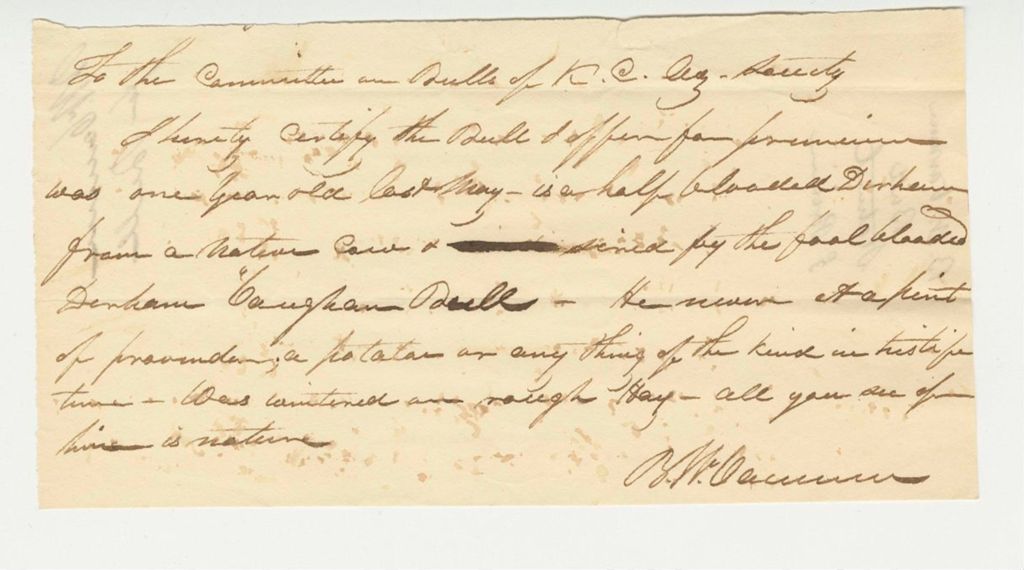 To the Committee on Bulls of K. C. Ag. Society
I hereby certify the Bull I offer for premium
was one year old last May - is a half blooded Durham
from a native cow & sired by the fool blooded
Durham Vaughan Bull - He never et a pint
of provender, a potatoe or any thing of the kind in his life
time - Was wintered on rough Hay - all you see of
him is nature
B. W.